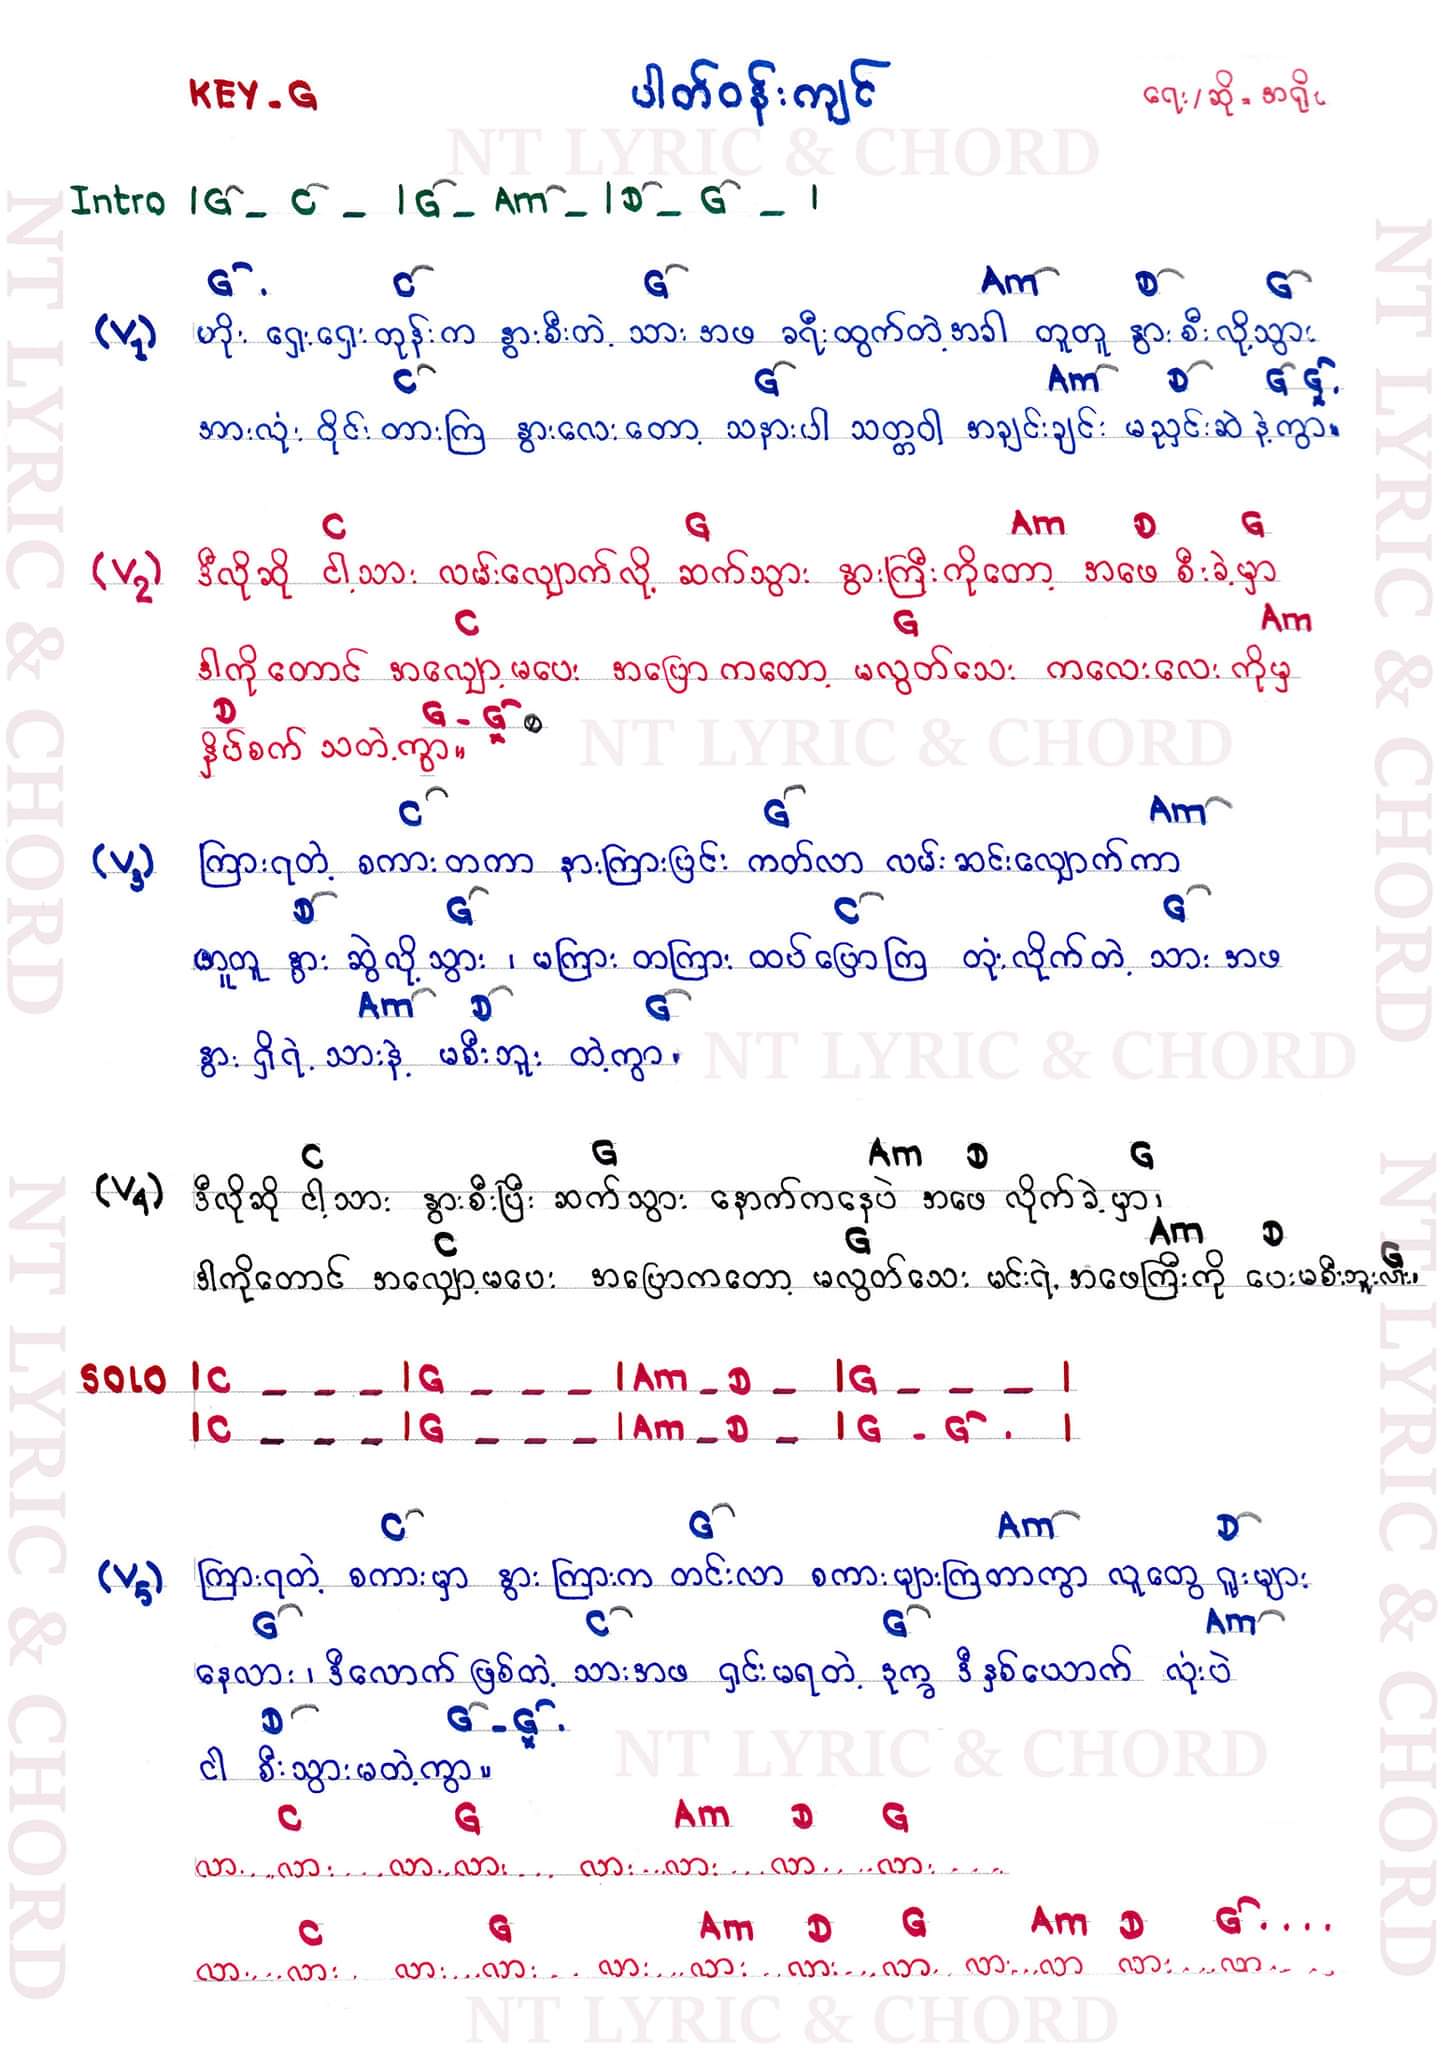 KEY - G
ပါတ်ဝန်းကျင်
ရေး/ဆို - အရိုး
NT LYRIC & CHORD
Intro |G _ C _ |G _ Am _ |D _ G _ |
G . C G Am D G
(V1) ဟိုး ရှေးရှေးတုန်းက နွားစီးတဲ့ သားအဖ ခရီးထွက်တဲ့အခါ တူတူ နွားစီးလို့သွား
C G Am D G G .
အားလုံး ဝိုင်းတားကြ နွားလေးတော့ သနားပါ သတ္တဝါ အချင်းချင်း မညှင်းဆဲနဲ့ကွာ။
C G Am D G
(V2) ဒီလိုဆို ငါ့သား လမ်းလျှောက်လို့ ဆက်သွား နွားကြီးကိုတော့ အဖေ စီးခဲ့မှာ
C G Am
ဒါကိုတောင် အလျှော့မပေး အပြောကတော့ မလွတ်သေး ကလေးလေးကိုမှ
D G - G
နှိပ်စက် သတဲ့ကွာ။
NT LYRIC & CHORD
C G Am
(V3) ကြားရတဲ့ စကားတကာ နားကြားပြင်း ကတ်လာ လမ်းဆင်းလျှောက်ကာ
D G C G
တူတူ နွား ဆွဲလို့သွား ၊ မကြား တကြား ထပ်ပြောကြ တုံးလိုက်တဲ့ သားအဖ
Am D G
နွား ရှိရဲ့သားနဲ့ မစီးဘူး တဲ့ကွာ၊
NT LYRIC & CHORD
C G Am D G
(V4) ဒီလိုဆို ငါ့သား နွားစီးပြီး ဆက်သွား နောက်ကနေပဲ အဖေ လိုက်ခဲ့မှာ၊
C G Am D G
ဒါကိုတောင် အလျှော့မပေး အပြောကတော့ မလွတ်သေး မင်းရဲ့အဖေကြီးကို ပေးမစီးဘူးလား၊
SOLO |C _ _ _ |G _ _ _ |Am _ D _ |G _ _ _ |
|C _ _ _ |G _ _ _ |Am _ D _ |G - G . |
C G Am D
(V5) ကြားရတဲ့ စကားမှာ နွားကြားက တင်းလာ စကားများကြတာကွာ လူတွေ ရူးများ
G C G Am
နေလား ၊ ဒီလောက် ဖြစ်တဲ့ သားအဖ ရှင်းမရတဲ့ ဒုက္ခ ဒီနှစ်ယောက် လုံးပဲ
D G - G .
ငါ စီးသွားမတဲ့ကွာ။
NT LYRIC & CHORD
C G Am D G
လား...လား....လား..လား.... လား...လား...လား.....လား....
C G Am D G Am D G....
လား....လား. လား....လား.. လား...လား..လား....လား.. လား...လား လား....လား....
NT LYRIC & CHORD
NT LYRIC & CHORD
NT LYRIC & CHORD
NT LYRIC & CHORD
NT LYRIC & CHORD